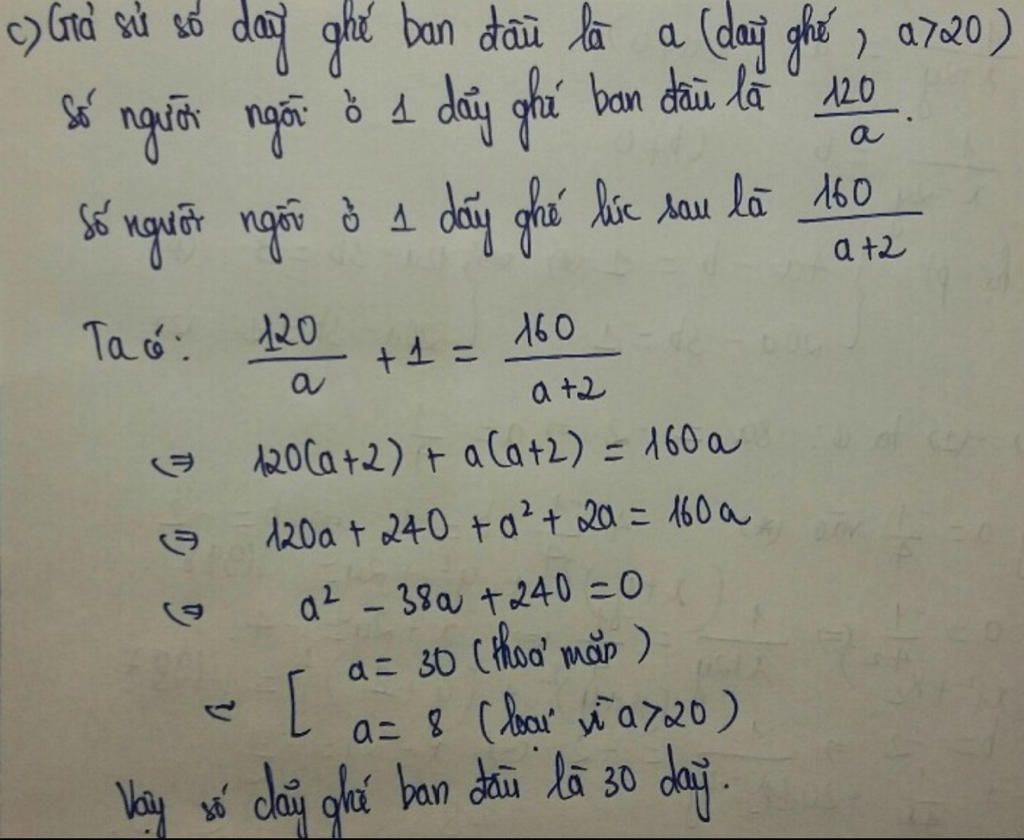 c) Giả sử số dãy ghế ban đầu là a (dãy ghế, a>20)
Số người ngồi ở 1 dãy ghế ban đầu là 120/a.
Số người ngồi ở 1 dãy ghế lúc sau là 160/(a+2)
Ta có: 120/a + 1 = 160/(a+2)
⇔ 120(a+2) + a(a+2) = 160a
⇔ 120a + 240 + a² + 2a = 160a
⇔ a² - 38a + 240 = 0
⇔ [ a = 30 (thoả mãn)
a = 8 (loại vì a>20)
Vậy số dãy ghế ban đầu là 30 dãy.